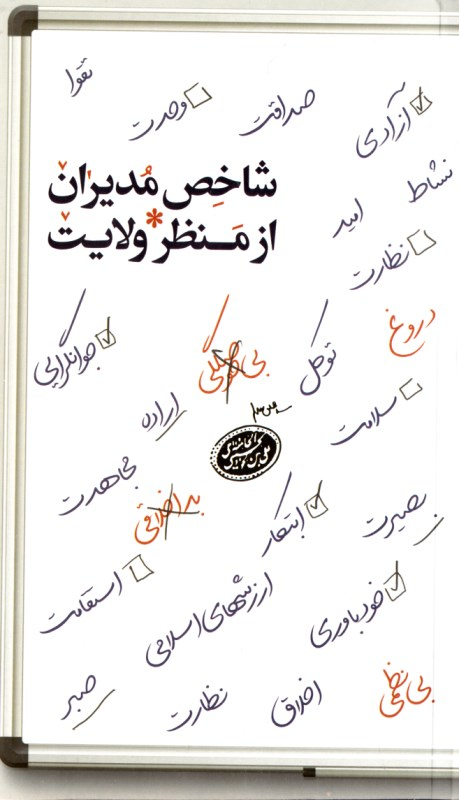 تقوا
وحدت
صداقت
آزادی
شاخص مدیران
از منظر ولایت
نشاط
امید
نظارت
دروغ
جوانگرایی
توکل
اراده
سلامت
مجاهدت
بداخلاقی
ابتکار
بصیرت
استقامت
ارزشهای اسلامی
خودباوری
صبر
نظارت
اخلاق
بی نظمی